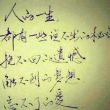 人的一生
都有一些说不出的秘密
挽不回的遗憾
触不到的梦想
忘不了的爱